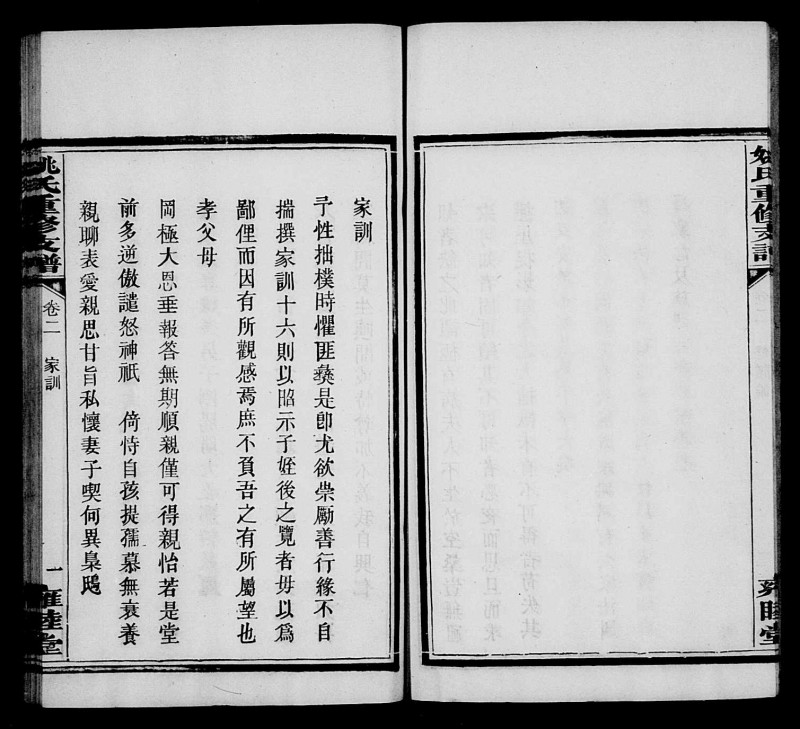 姚氏重修支譜
雍睦堂
家訓
予性拙樸時懼匪彝是卽尤欲崇勵善行緣不自
揣撰家訓十六則以昭示子姪後之覽者毋以爲
鄙俚而因有所觀感焉庶不負吾之有所屬望也
孝父母
罔極大恩垂報答無期順親僅可得親怡若是堂
前多逆傲譴怒神祇 倚恃自孩提孺慕無衰養
親聊表愛親思甘旨私懷妻子喫何異梟鴟
姚氏重修支譜
卷二 家訓
一
雍睦堂